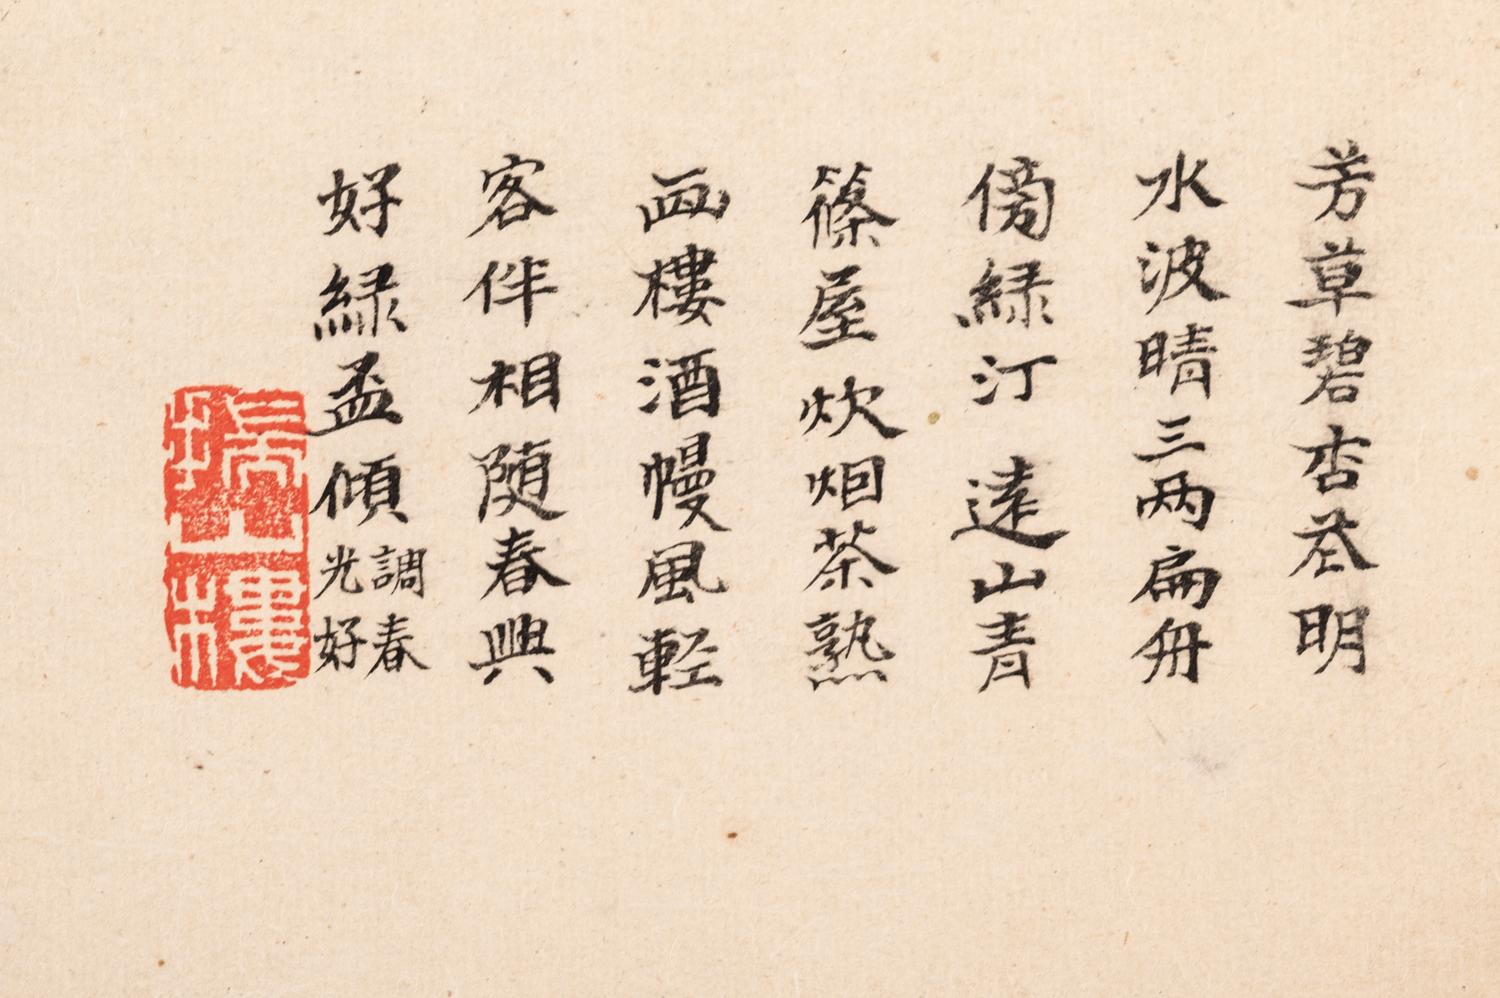 芳草碧杏花明
水波晴三両扁舟
傍緑汀遠山青
篠屋炊烟茶熟
画樓酒幔風軽
客伴相随春興
好緑盃傾
調春
光好